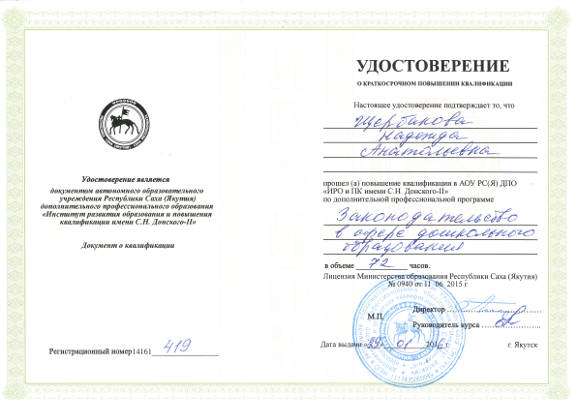 Удостоверение является
документом автономного образовательного
учреждения Республики Саха (Якутия)
дополнительного профессионального образования
«Институт развития образования и повышения
квалификации имени С.Н. Донского-II»
Документ о квалификации
Регистрационный номер14161 419
УДОСТОВЕРЕНИЕ
О КРАТКОСРОЧНОМ ПОВЫШЕНИИ КВАЛИФИКАЦИИ
Настоящее удостоверение подтверждает то, что
Щербакова
Надежда
Анатольевна
прошел (а) повышение квалификации в АОУ РС(Я) ДПО
«ИРО и ПК имени С.Н. Донского-II»
по дополнительной профессиональной программе
Законодательство
в сфере дошкольного
образования
в объеме 72 часов.
Лицензия Министерства образования Республики Саха (Якутия)
№ 0940 от 11 06 2015 г
Директор
М.П.
Руководитель курса
Дата выдачи 01 2016 г. г. Якутск